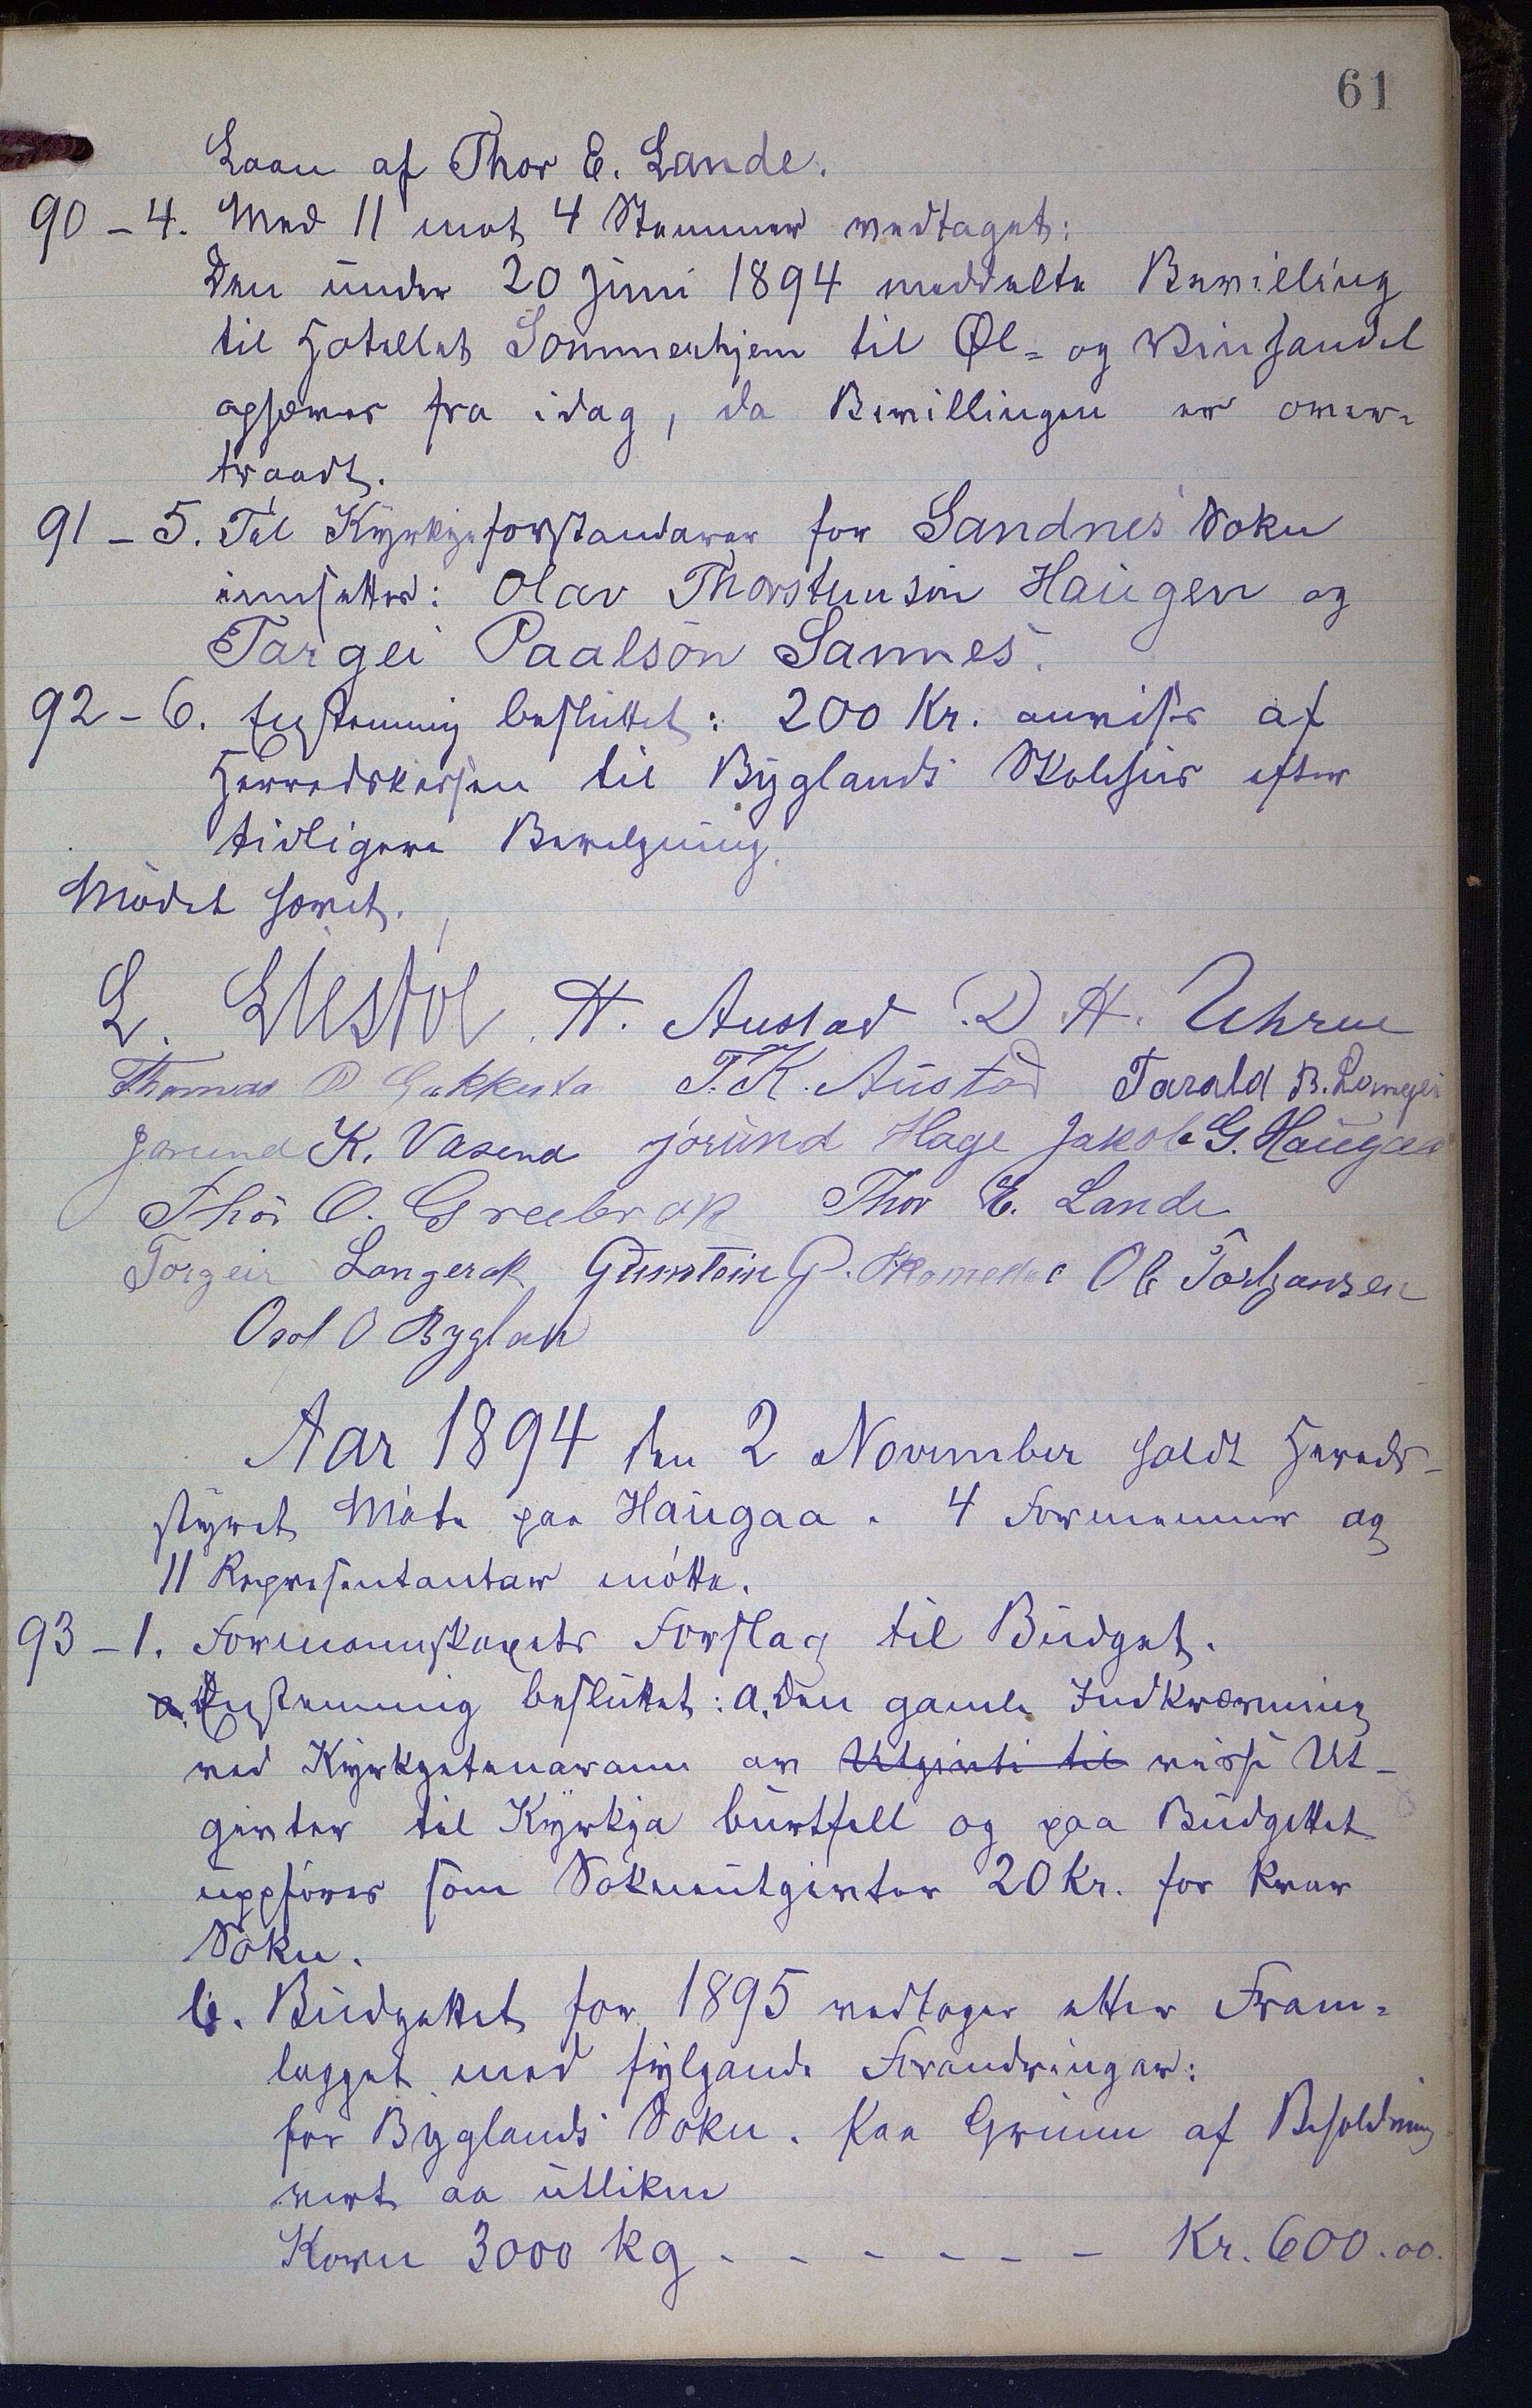 61
Laan af Thor E. Lande.
90-4. Med 11 mot 4 Stemmer vedtaget:
Den under 20 Juni 1894 meddelte Bevilling
til Hotellet Sommerhjem til Øl- og Vinhandel
ophæves fra idag, da Bevillingen er over-
traadt.
91-5. Til Kyrkjeforstandarar for Sandnes Sokn
innsettes: Olav Thorstenson Haugen og
Targei Paalson Sannes.
92-6. Enstemmig besluttet: 200 Kr. anvises af
Herredskassen til Byglands Skolehus efter
tidligere Bevilgning.
Mødet hævet.
L. Liestøl H. Austad D. H. Uhrne
Thomas O T. K. Austad Tarald B. Longei
Jørund K. Vasend Jørund Hage Jakob G. Haugaa
Thor O. Greibrok Thor E. Lande
Torgeir Langerak Gunstein G. Skomedal O G Torkjønsen
Osol O Byglan
Aar 1894 den 2 November holdt Hereds-
styret Møte paa Haugaa. 4 Formenner og
11 Representantar møtte.
93-1. Formannskapets Forslag til Budget.
a. Enstemmig besluttet: a. den gamle Indkrævning
ved Kyrkjetenarann av Utgivti til vissi Ut-
givter til Kyrkja burtfell og paa Budgettet
uppføres som Sokneutgivter 20 Kr. for kvar
Sokn.
b. Budgettet for 1895 vedtoges etter Fram-
legget med fylgjande Forandringar:
for Byglands Sokn. Paa Grunn af Besoldning
vert aa utlikna
Korn 3000 kg - - - - - - Kr. 600.00.